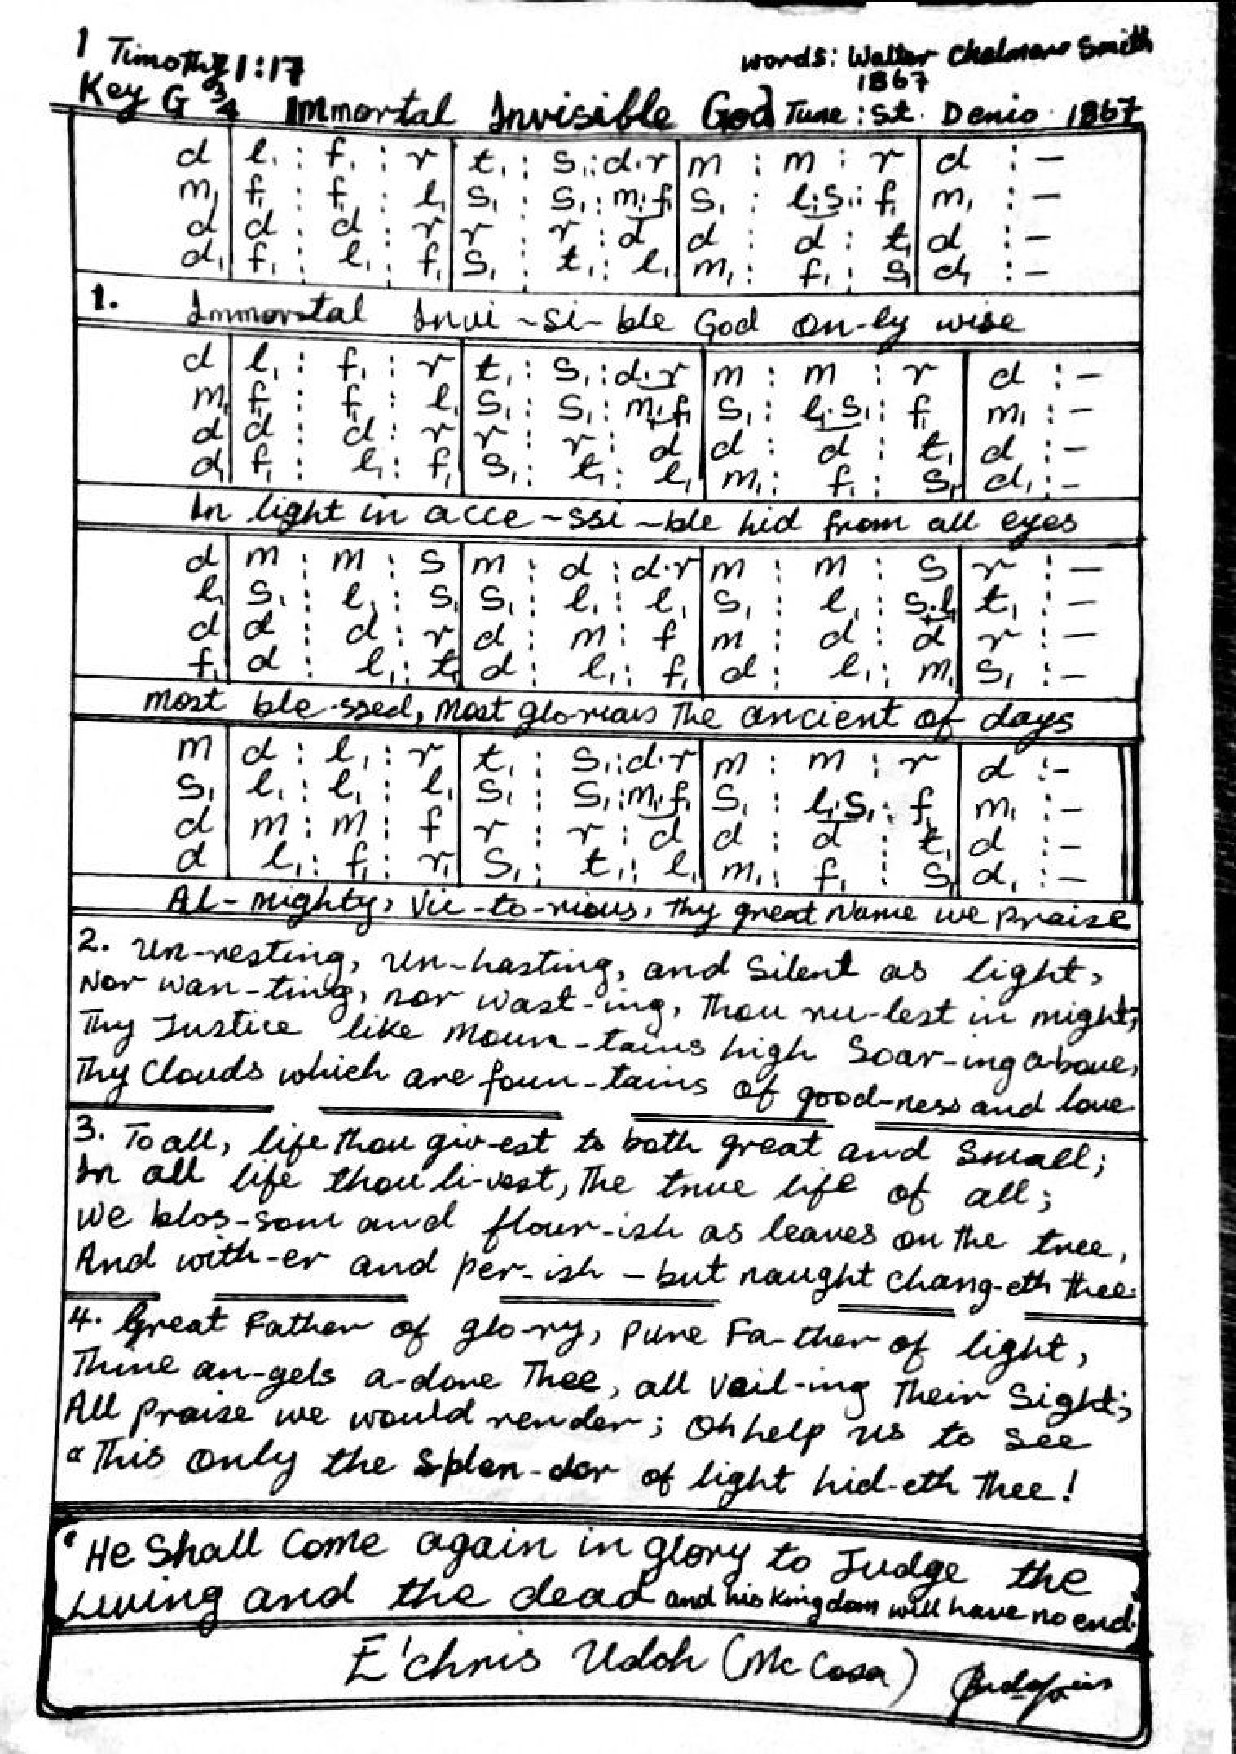 1 Timothy 1:17
words: Walter Chalmers Smith
1867
Key G 3/4 Immortal Invisible God Tune: St. Denio 1867
d | l₁ : f₁ : r | t₁ : s₁ : d.r | m : m : r | d : –
m₁ | f₁ : f₁ : l₁ | s₁ : s₁ : m₁.f₁ | s₁ : l₁.s₁ : f₁ | m₁ : –
d | d : d : r | r : r : d | d : d : t₁ | d : –
d₁ | f₁ : l₁ : f₁ | s₁ : t₁ : l₁ | m₁ : f₁ : s₁ | d₁ : –
1. Immortal Invi-si-ble God on-ly wise
d | l₁ : f₁ : r | t₁ : s₁ : d.r | m : m : r | d : –
m₁ | f₁ : f₁ : l₁ | s₁ : s₁ : m₁.f₁ | s₁ : l₁.s₁ : f₁ | m₁ : –
d | d : d : r | r : r : d | d : d : t₁ | d : –
d₁ | f₁ : l₁ : f₁ | s₁ : t₁ : l₁ | m₁ : f₁ : s₁ | d₁ : –
In light in acce-ssi-ble hid from all eyes
d | m : m : s | m : d : d.r | m : m : s | r : –
l₁ | s₁ : l₁ : s₁ | s₁ : l₁ : l₁ | s₁ : l₁ : s₁.l₁ | t₁ : –
d | d : d : r | d : m : f | m : d : d | r : –
f₁ | d : l₁ : t₁ | d : l₁ : f₁ | d : l₁ : m₁ | s₁ : –
Most ble-ssed, Most glorious The ancient of days
m | d : l₁ : r | t₁ : s₁ : d.r | m : m : r | d : –
s₁ | l₁ : l₁ : l₁ | s₁ : s₁ : m₁.f₁ | s₁ : l₁.s₁ : f₁ | m₁ : –
d | m : m : f | r : r : d | d : d : t₁ | d : –
d | l₁ : f₁ : r₁ | s₁ : t₁ : l₁ | m₁ : f₁ : s₁ | d₁ : –
Al-mighty, Vic-to-rious, Thy great Name we praise
2. Un-resting, un-hasting, and silent as light,
Nor wan-ting, nor wast-ing, Thou ru-lest in might;
Thy Justice like Moun-tains high Soar-ing above,
Thy Clouds which are foun-tains of good-ness and love
3. To all, life thou giv-est to both great and small;
In all life thou li-vest, The true life of all;
We blos-som and flour-ish as leaves on the tree,
And with-er and per-ish – but naught chang-eth thee.
4. Great Father of glo-ry, pure Fa-ther of light,
Thine an-gels a-dore Thee, all veil-ing Their Sight;
All praise we would render; Oh help us to see
This only the splen-dor of light hid-eth Thee!
"He shall come again in glory to Judge the
Living and the dead and his kingdom will have no end.
E'chris Udoh (McCasa)